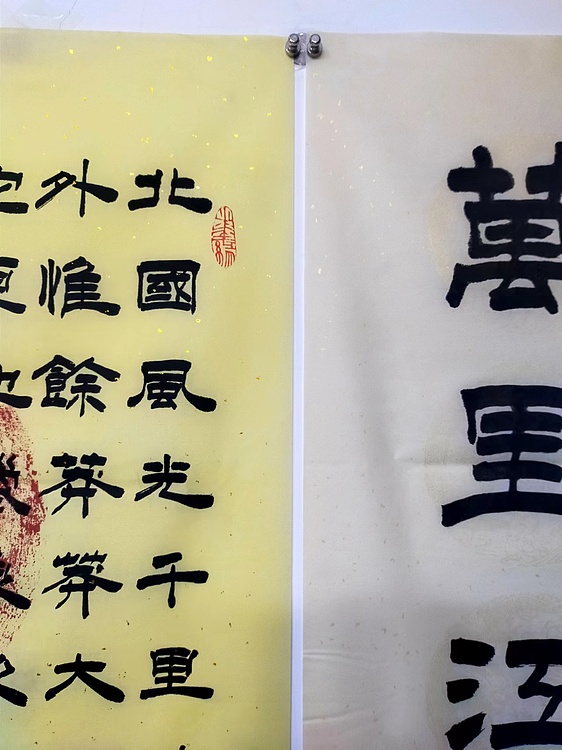 萬里江
北國風光千里
外惟餘莽莽大